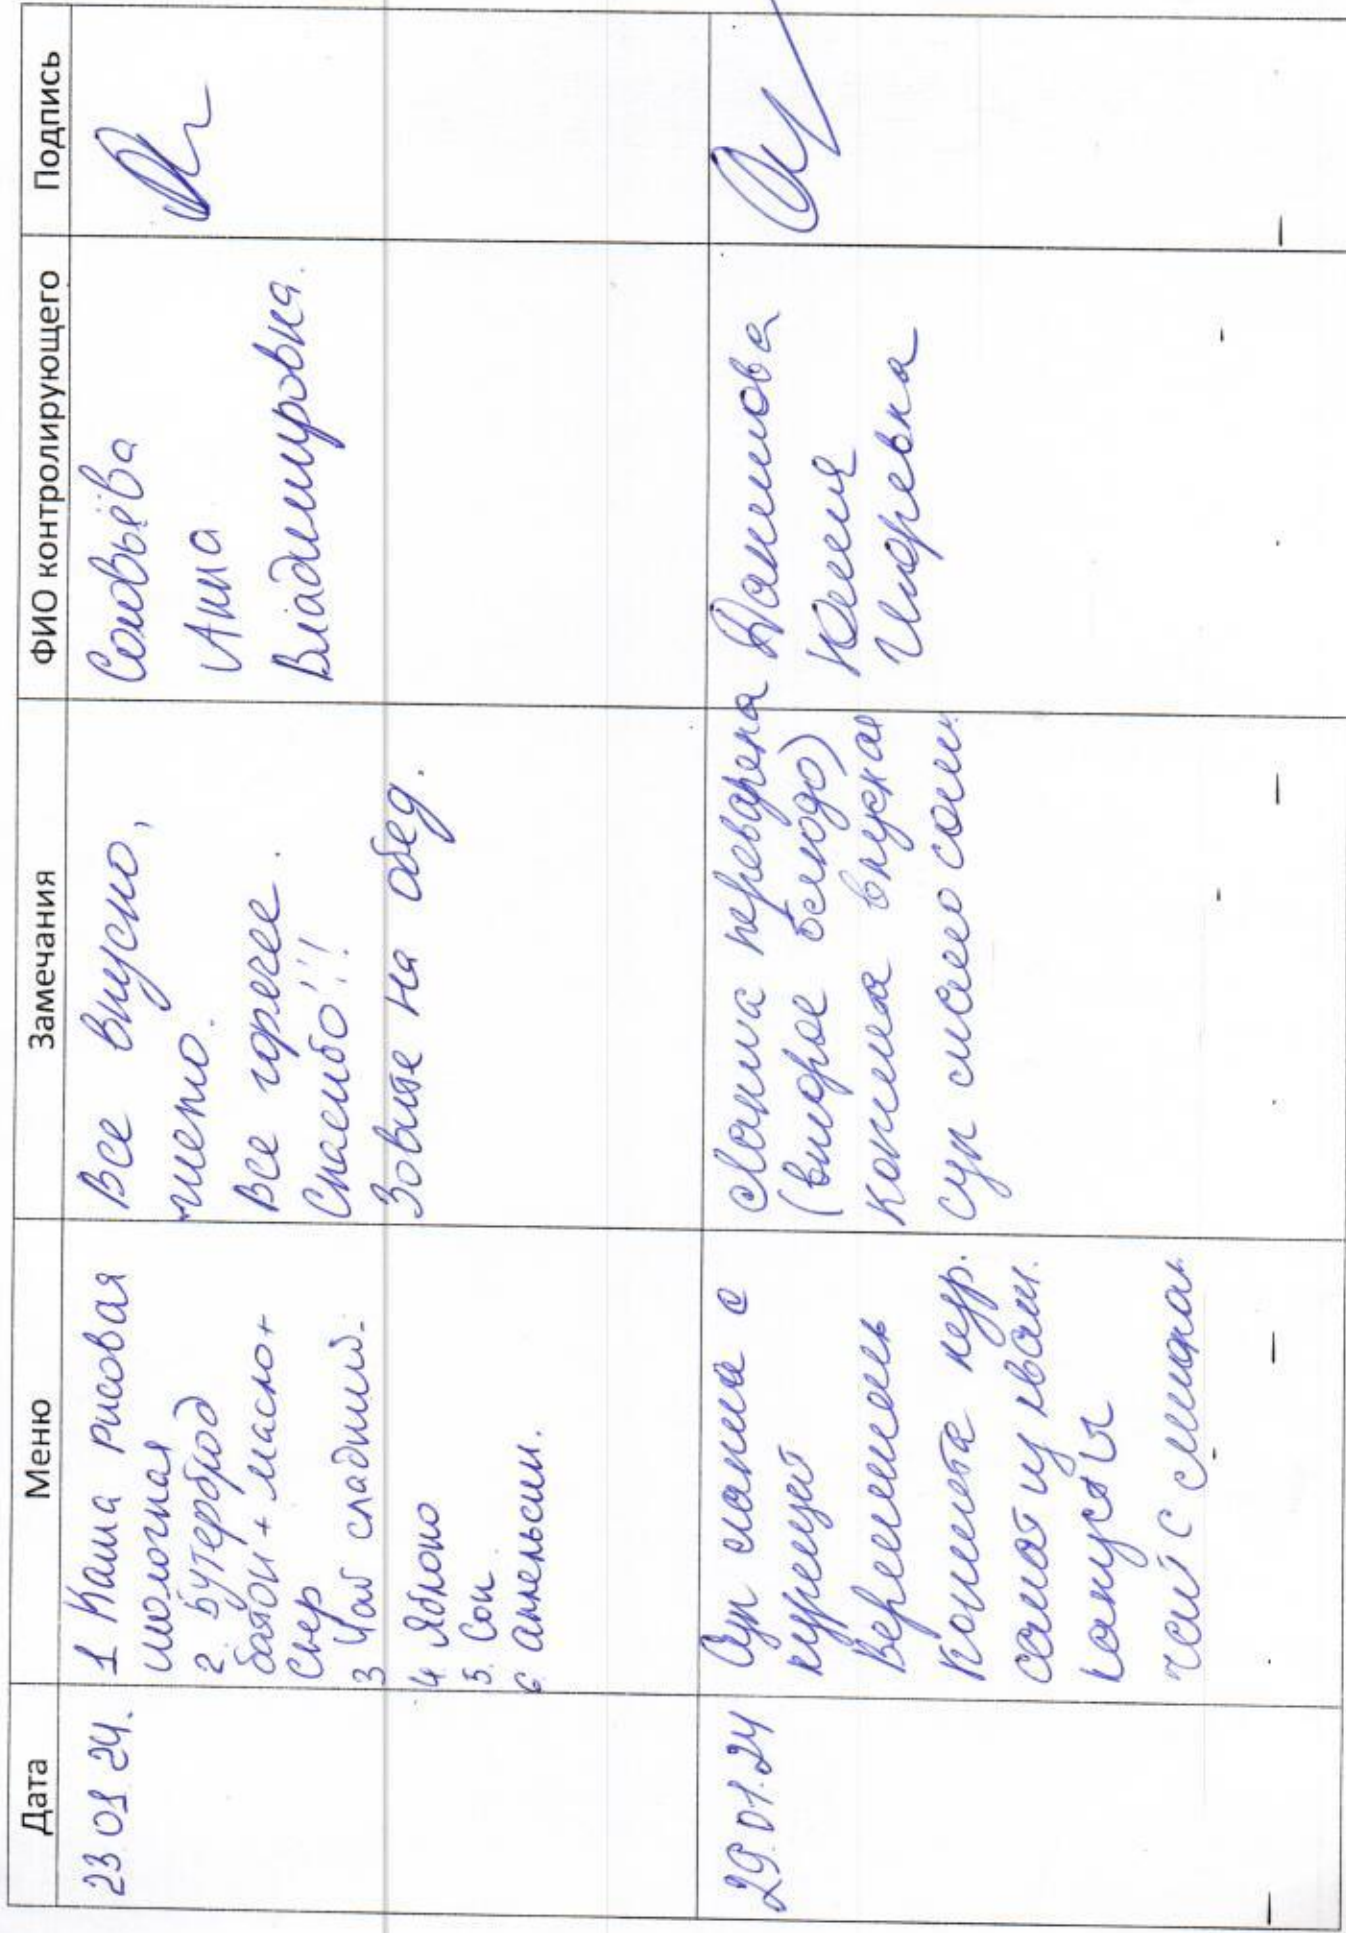 Дата Меню Замечания ФИО контролирующего Подпись
23.01.24.
1 Каша рисовая
молочная
2. Бутерброд
батон + масло +
сыр
3 Чай сладкий.
4. Яблоко
5. Сок
6. Апельсин.
Все вкусно,
чисто.
Все горячее.
Спасибо!!!
Зовите на обед.
Соловьёва
Анна
Владимировна.
29.01.24
Суп лапша с
курицей
Вермишель
Котлета кур.
салат из кваш.
капусты
чай с
Лапша переварена
(второе блюдо)
котлета вкусная
суп мало соли
Данилова
Юлия
Игоревна